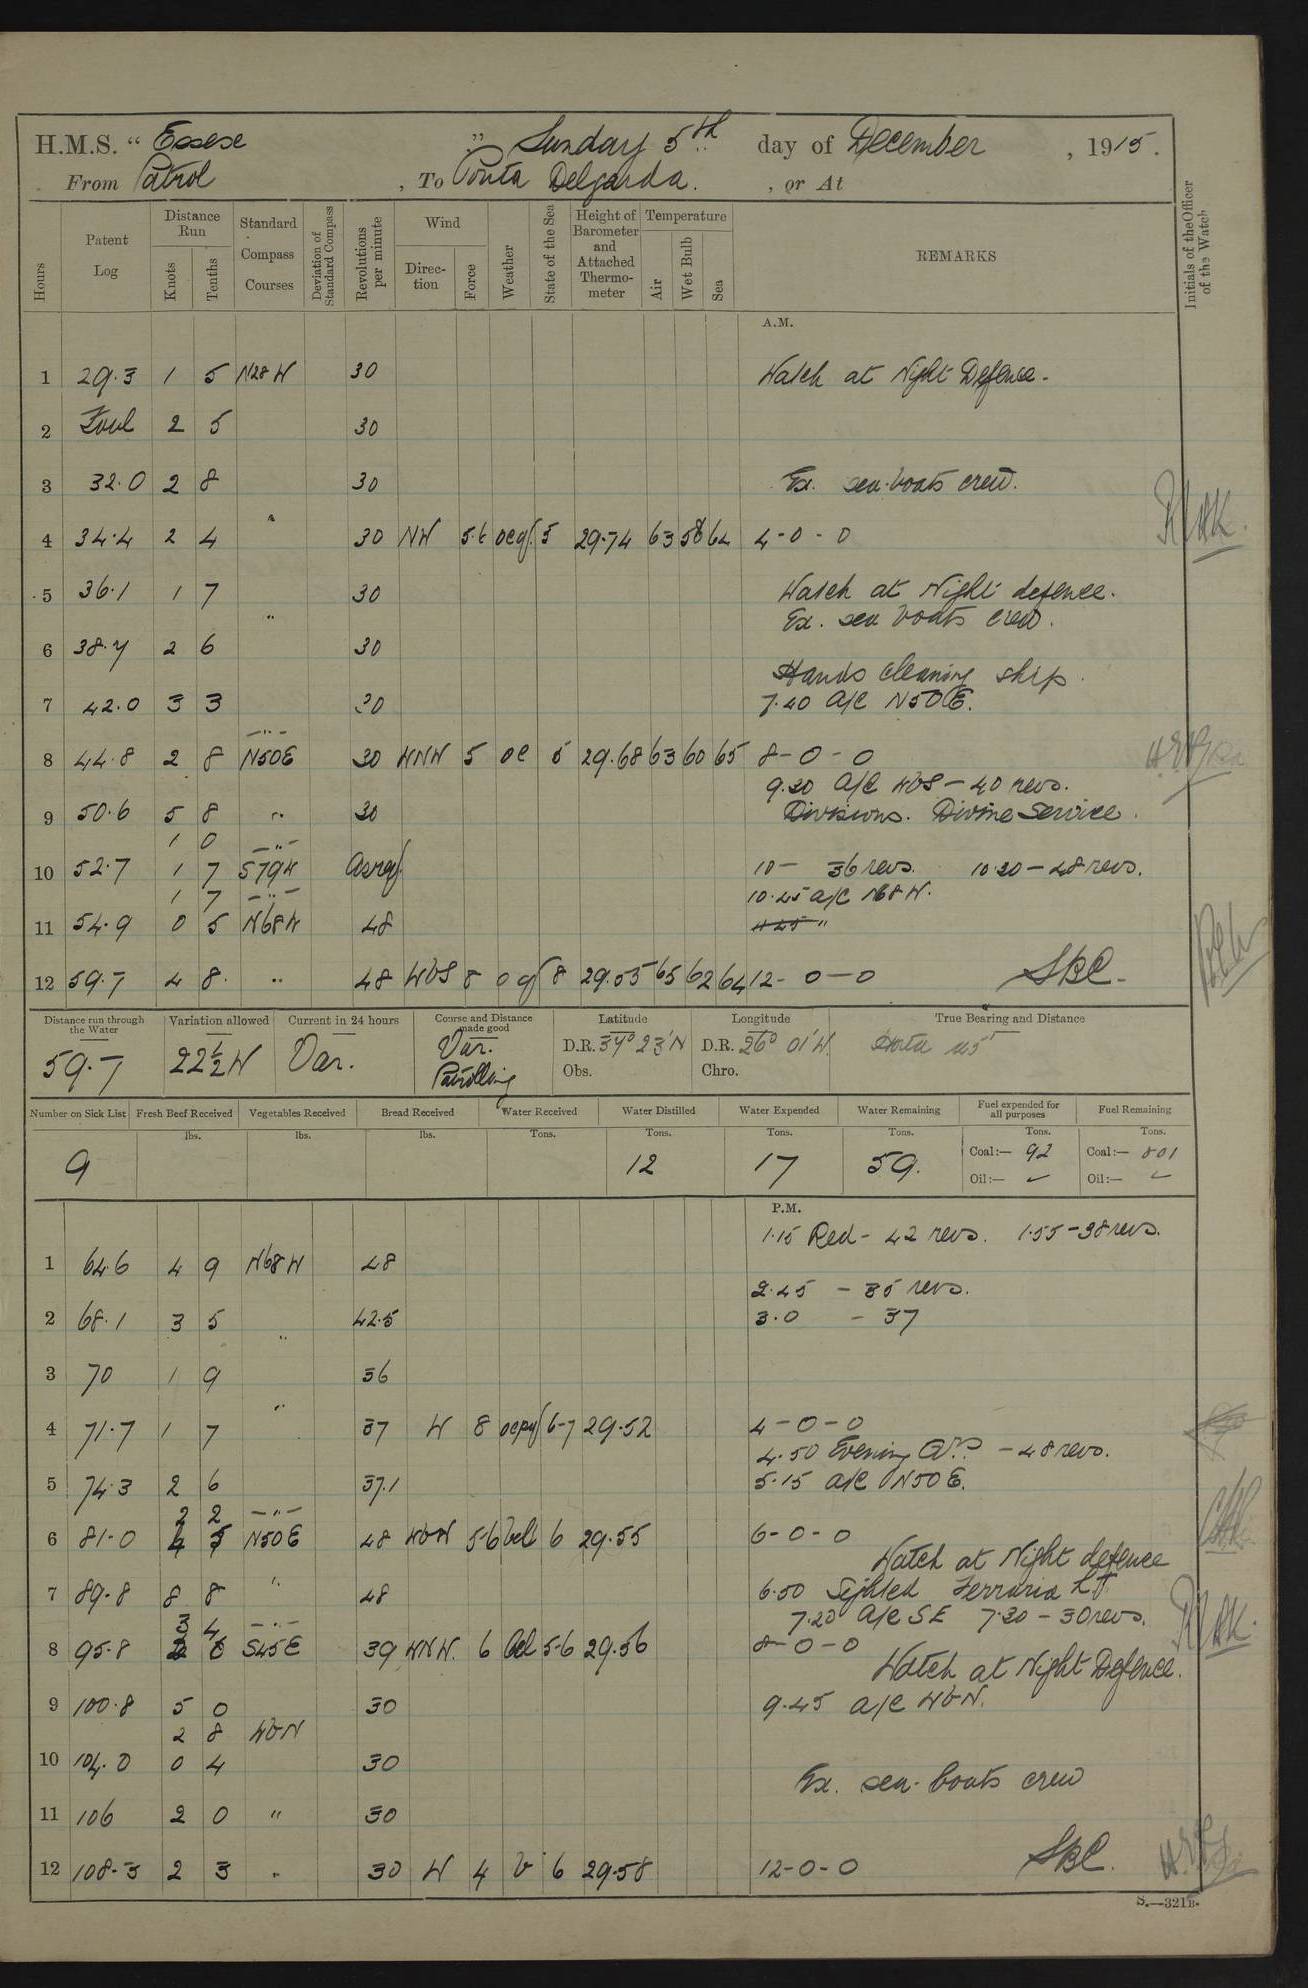 H.M.S. " Essex " Sunday 5th day of December , 1915.
From Patrol , To Ponta Delgarda. , or At
Hours
Patent Log
Distance Run
Knots
Tenths
Standard Compass Courses
Deviation of Standard Compass
Revolutions per minute
Wind
Direction
Force
Weather
State of the Sea
Height of Barometer and Attached Thermometer
Temperature
Air
Wet Bulb
Sea
REMARKS
Initials of the Officer of the Watch
A.M.
1 29.3 1 5 N28W 30 Watch at Night Defence.
2 Foul 2 5 30
3 32.0 2 8 30 Ex. sea-boats crew.
4 34.4 2 4 " 30 NW 5.6 ocq. 5 29.74 63 58 64 4-0-0
5 36.1 1 7 30 Watch at Night defence.
" Ex. sea boats crew.
6 38.7 2 6 30
Hands cleaning ship.
7 42.0 3 3 30 7.40 A/C N50E.
8 44.8 2 8 N50E 30 WNW 5 oc 5 29.68 63 60 65 8-0-0
9.20 A/C WbS - 40 revs.
9 50.6 5 8 " 30 Divisions. Divine Service.
1 0 - " -
10 52.7 1 7 S79W Asreq. 10 - 36 revs. 10.20 - 48 revs.
1 7 - " - 10.45 a/c N68W.
11 54.9 0 5 N68W 48
12 59.7 4 8 " 48 WbS 8 oq 8 29.55 65 62 64 12-0-0 SBC.
Distance run through the Water
Variation allowed
Current in 24 hours
Course and Distance made good
Latitude
Longitude
True Bearing and Distance
59.7 22½W Var. Var. Patrolling
D.R. 37° 23'N D.R. 26° 01'W. Horta
Obs. Chro.
Number on Sick List
Fresh Beef Received
Vegetables Received
Bread Received
Water Received
Water Distilled
Water Expended
Water Remaining
Fuel expended for all purposes
Fuel Remaining
lbs. lbs. lbs. Tons. Tons. Tons. Tons. Tons. Tons.
9 12 17 59. Coal:— 92 Coal:— 801
Oil:— ✓ Oil:— ✓
P.M.
1.15 Red - 42 revs. 1.55 - 38 revs.
1 64.6 4 9 N68W 48
2.45 - 35 revs.
2 68.1 3 5 " 42.5 3.0 - 37
3 70 1 9 36
4 71.7 1 7 " 37 W 8 ocpq 6-7 29.52 4-0-0
4.50 Evening Qrs. - 48 revs.
5 74.3 2 6 37.1 5.15 a/c N50E.
2 2 - " -
6 81.0 4 5 N50E 48 WbN 5-6 6 29.55 6-0-0
Watch at Night defence
7 89.8 8 8 " 48 6.50 Sighted Ferraria Lt.
3 4 - " - 7.20 A/C SE 7.30 - 30 revs.
8 95.8 2 6 S45E 39 WNW. 6 5-6 29.56 8-0-0
Watch at Night Defence.
9 100.8 5 0 30 9.45 a/c WbN.
2 8 WbN
10 104.0 0 4 30
Ex. sea-boats crew
11 106 2 0 " 30
12 108.3 2 3 " 30 W 4 b 6 29.58 12-0-0 SBC.
S.—321B.